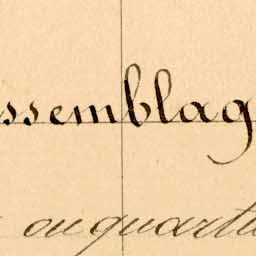 ssemblag
ou quart